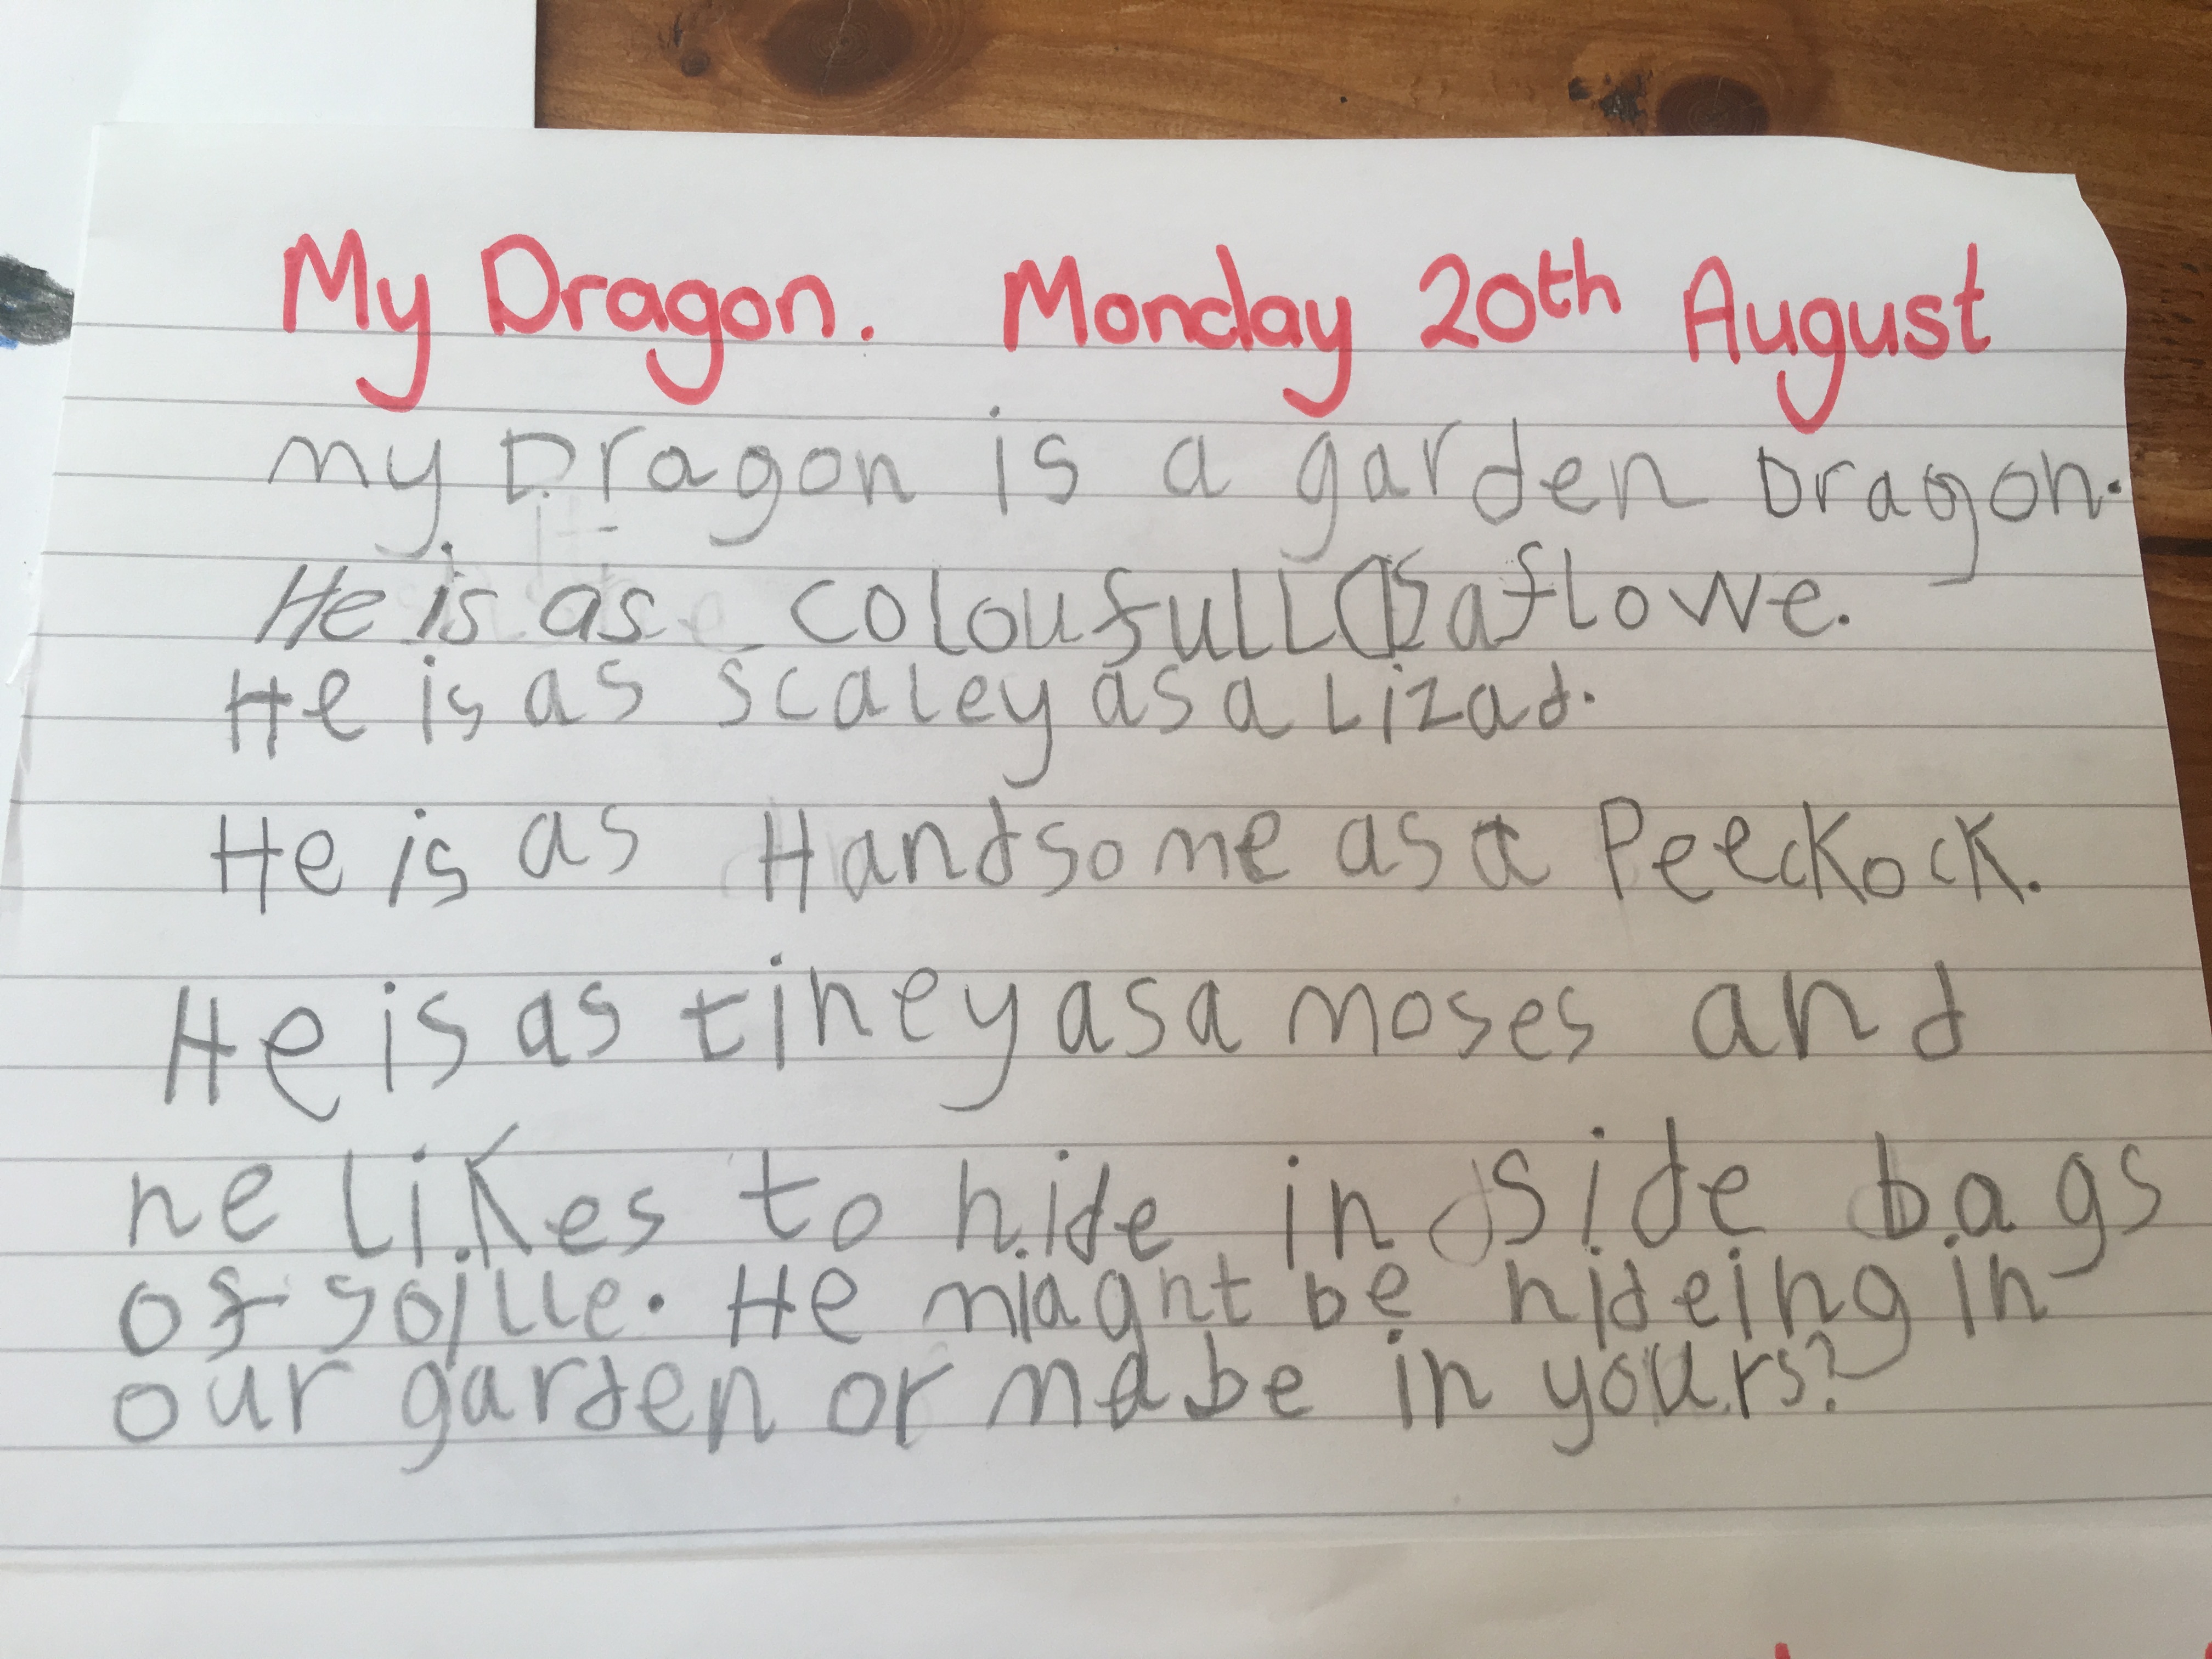 My Dragon. Monday 20th August
my Dragon is a garden Dragon.
He is as coloufull as a flowe.
He is as scaley as a Lizad.
He is as Handsome as a Peeckock.
He is as tiney as a moses and
he likes to hide in side bags
of soille. He miaght be hideing in
our garden or mabe in yours?